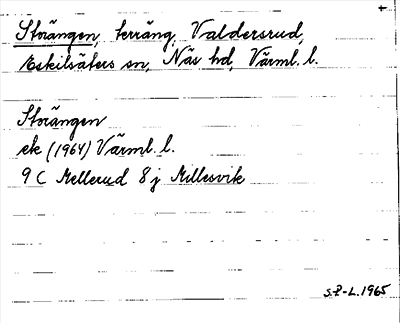 Storängen, terräng, Valdersrud,
Eskilsäters sn, Näs hd, Värml. l.
Storängen
ek (1964) Värml. l.
9 C Mellerud 8 j Millesvik
S.P-L. 1965